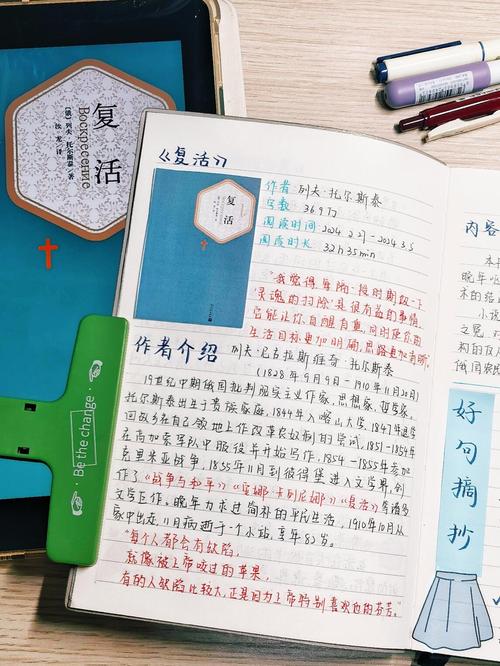 复活
Воскресение
[俄]列夫·托尔斯泰 著
汝龙 译
《复活》
作者 列夫·托尔斯泰
字数 36.9万
阅读时间 2024.2.27-2024.3.5
阅读时长 32h35min
复活
"我觉得每隔一段时期做一下
'灵魂的扫除'是很有益的事情,
它能让你自醒自重,同时使你的
生活目标更加明确,思路更加清晰"
作者介绍 列夫·尼古拉斯维奇·托尔斯泰
(1828年9月9日-1910年11月20日)
19世纪中期俄国批判现实主义作家、思想家、哲学家。
托尔斯泰出生于贵族家庭,1844年入喀山大学,1847年退学
回故乡在自己领地上作改革农奴制的尝试,1851-1854年
在高加索军队中服役并开始写作,1854-1855年参加
克里米亚战争,1855年11月到彼得堡进入文学界,创
作了《战争与和平》《安娜·卡列尼娜》《复活》等诸多
文学巨作。晚年力求过简朴的平民生活,1910年10月从
家中出走,11月病逝于一个小站,享年82岁。
"每个人都会有缺陷,
就像被上帝咬过的苹果,
有的人缺陷比较大,正是因为上帝特别喜欢他的芬芳。"
Be the change.
内容
本书
晚年呕
术的结
小说
构的
好句摘抄